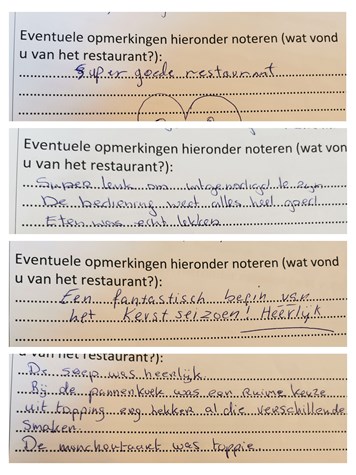 Eventuele opmerkingen hieronder noteren (wat vond
u van het restaurant?):
Super goede restaurant
Eventuele opmerkingen hieronder noteren (wat von
u van het restaurant?):
Super leuk om uitgenodigd te zijn
De bediening weet alles heel goed
Eten was echt lekker
Eventuele opmerkingen hieronder noteren (wat vond
u van het restaurant?):
Een fantastisch begin van
het Kerstseizoen! Heerlijk
u van het restaurant?):
De soep was heerlijk.
Bij de pannenkoek was een ruime keuze
uit topping erg lekker al die verschillende
smaken.
De monchoutaart was toppie.